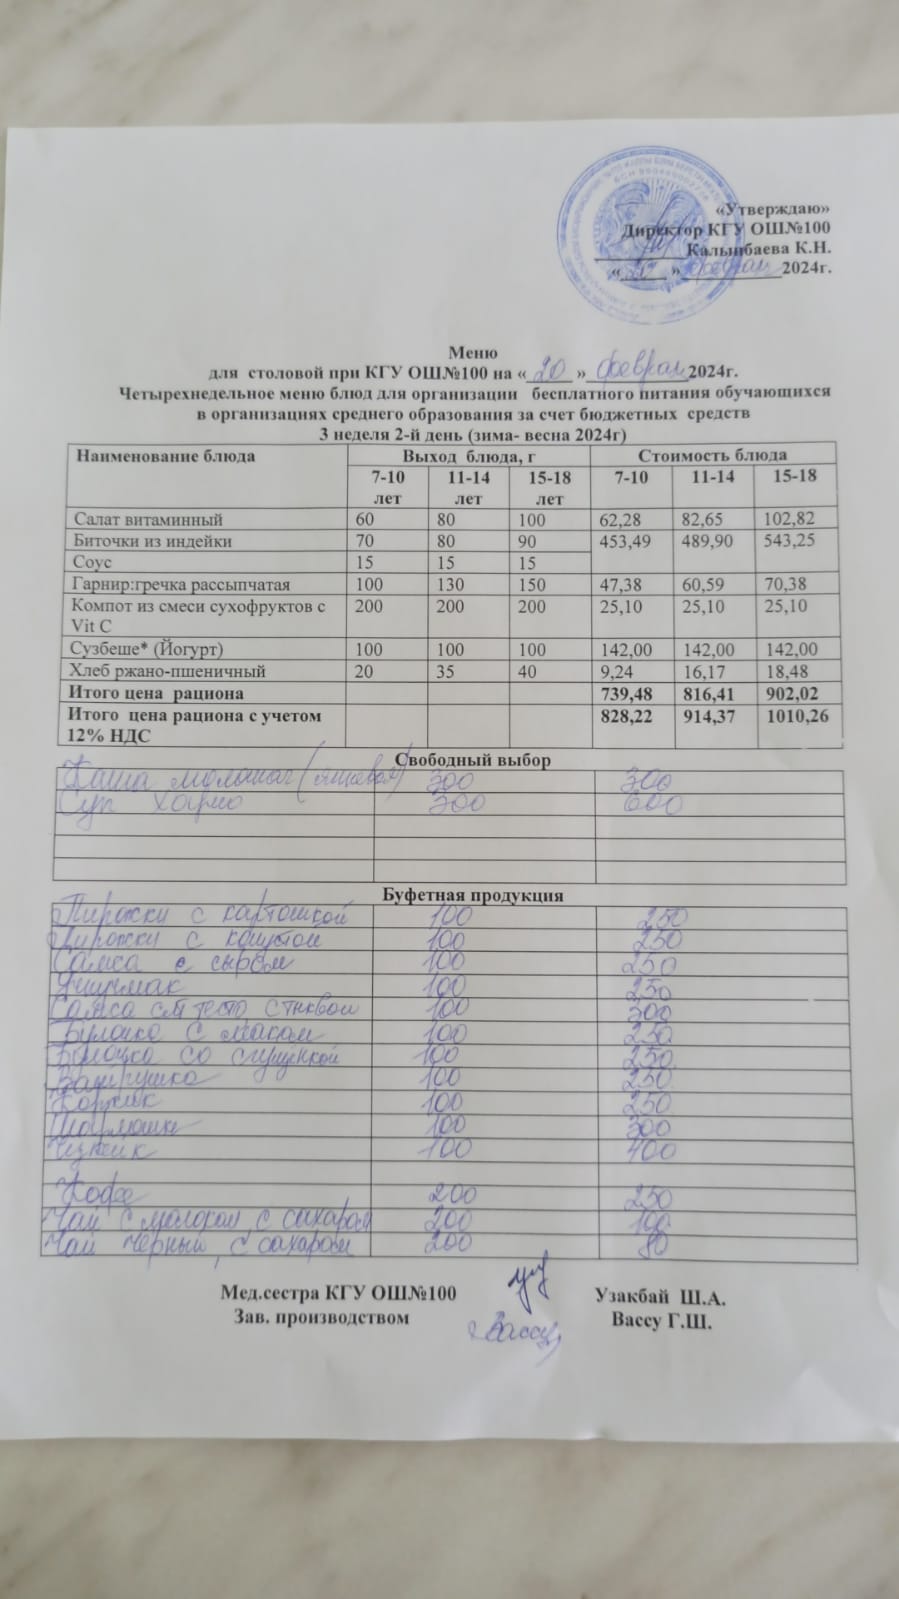 «Утверждаю»
Директор КГУ ОШ№100
Калынбаева К.Н.
«20» февраля 2024г.
Меню
для столовой при КГУ ОШ№100 на «20» февраля 2024г.
Четырехнедельное меню блюд для организации бесплатного питания обучающихся
в организациях среднего образования за счет бюджетных средств
3 неделя 2-й день (зима- весна 2024г)
Наименование блюда Выход блюда, г Стоимость блюда
7-10 лет 11-14 лет 15-18 лет 7-10 11-14 15-18
Салат витаминный 60 80 100 62,28 82,65 102,82
Биточки из индейки 70 80 90 453,49 489,90 543,25
Соус 15 15 15
Гарнир:гречка рассыпчатая 100 130 150 47,38 60,59 70,38
Компот из смеси сухофруктов с 200 200 200 25,10 25,10 25,10
Vit C
Сузбеше* (Йогурт) 100 100 100 142,00 142,00 142,00
Хлеб ржано-пшеничный 20 35 40 9,24 16,17 18,48
Итого цена рациона 739,48 816,41 902,02
Итого цена рациона с учетом 828,22 914,37 1010,26
12% НДС
Свободный выбор
Каша молочная 300 300
Суп Харчо 300 600
Буфетная продукция
Пирожки с картошкой 100 250
Пирожки с капустой 100 250
Самса с сыром 100 250
100 250
Самса тесто с тыквой 100 300
Булочка с маком 100 250
Булочка со сгущенкой 100 250
Ватрушка 100 250
Коржик 100 250
100 300
Чизкейк 100 400
Кофе 200 250
Чай с молоком, с сахаром 200 100
Чай черный, с сахаром 200 80
Мед.сестра КГУ ОШ№100 Узакбай Ш.А.
Зав. производством Вассу Вассу Г.Ш.